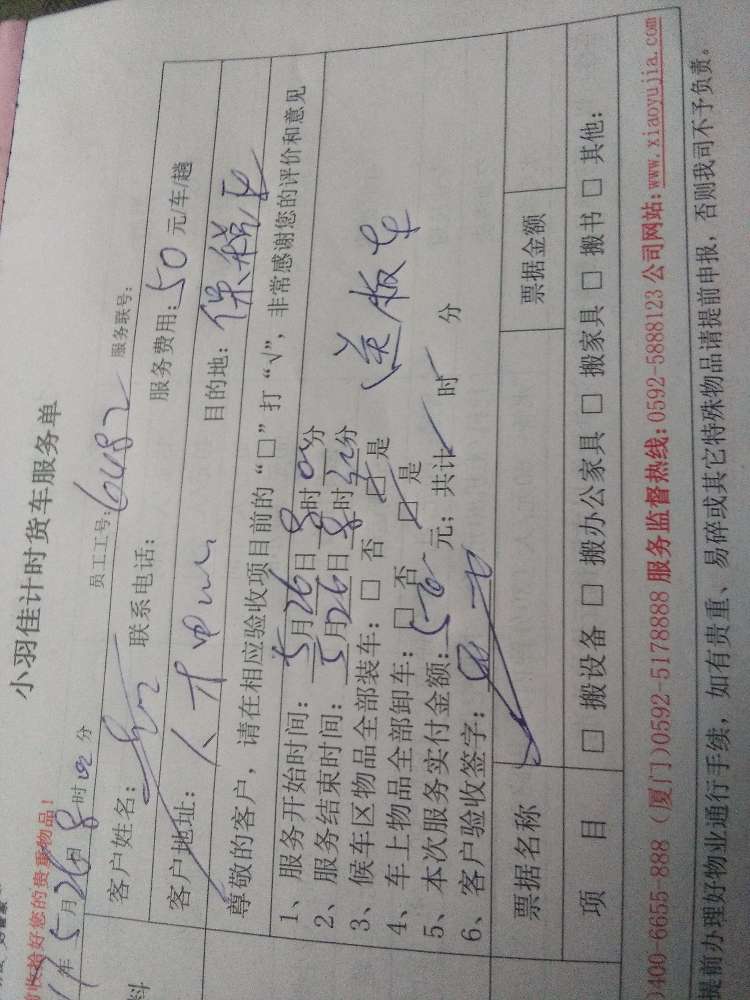 小羽佳计时货车服务单
收拾好您的贵重物品！
年5月26日8时00分
员工工号：6482 服务联号：
客户姓名： 联系电话： 服务费用：50元/车/趟
客户地址：人才中心 目的地：保税区
尊敬的客户，请在相应验收项目前的“□”打“√”，非常感谢您的评价和意见
1、服务开始时间：5月26日8时00分
2、服务结束时间：5月26日8时30分
3、候车区物品全部装车：□ 否 □ 是 送板车
4、车上物品全部卸车：□ 否 □ 是
5、本次服务实付金额：50元；共计 时 分
6、客户验收签字：
票据名称 票据金额
项 目 □ 搬设备 □ 搬办公家具 □ 搬家具 □ 搬书 □ 其他：
)400-6655-888 （厦门）0592-5178888 服务监督热线：0592-5888123 公司网站：www.xiaoyujia.com
提前办理好物业通行手续，如有贵重、易碎或其它特殊物品请提前申报，否则我司不予负责。